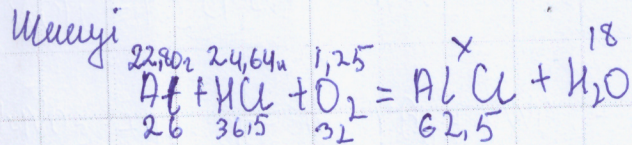 Шешуі
22,90г 24,64л 1,25 x 18
Al + HCl + O₂ = AlCl + H₂O
26 36,5 32 62,5